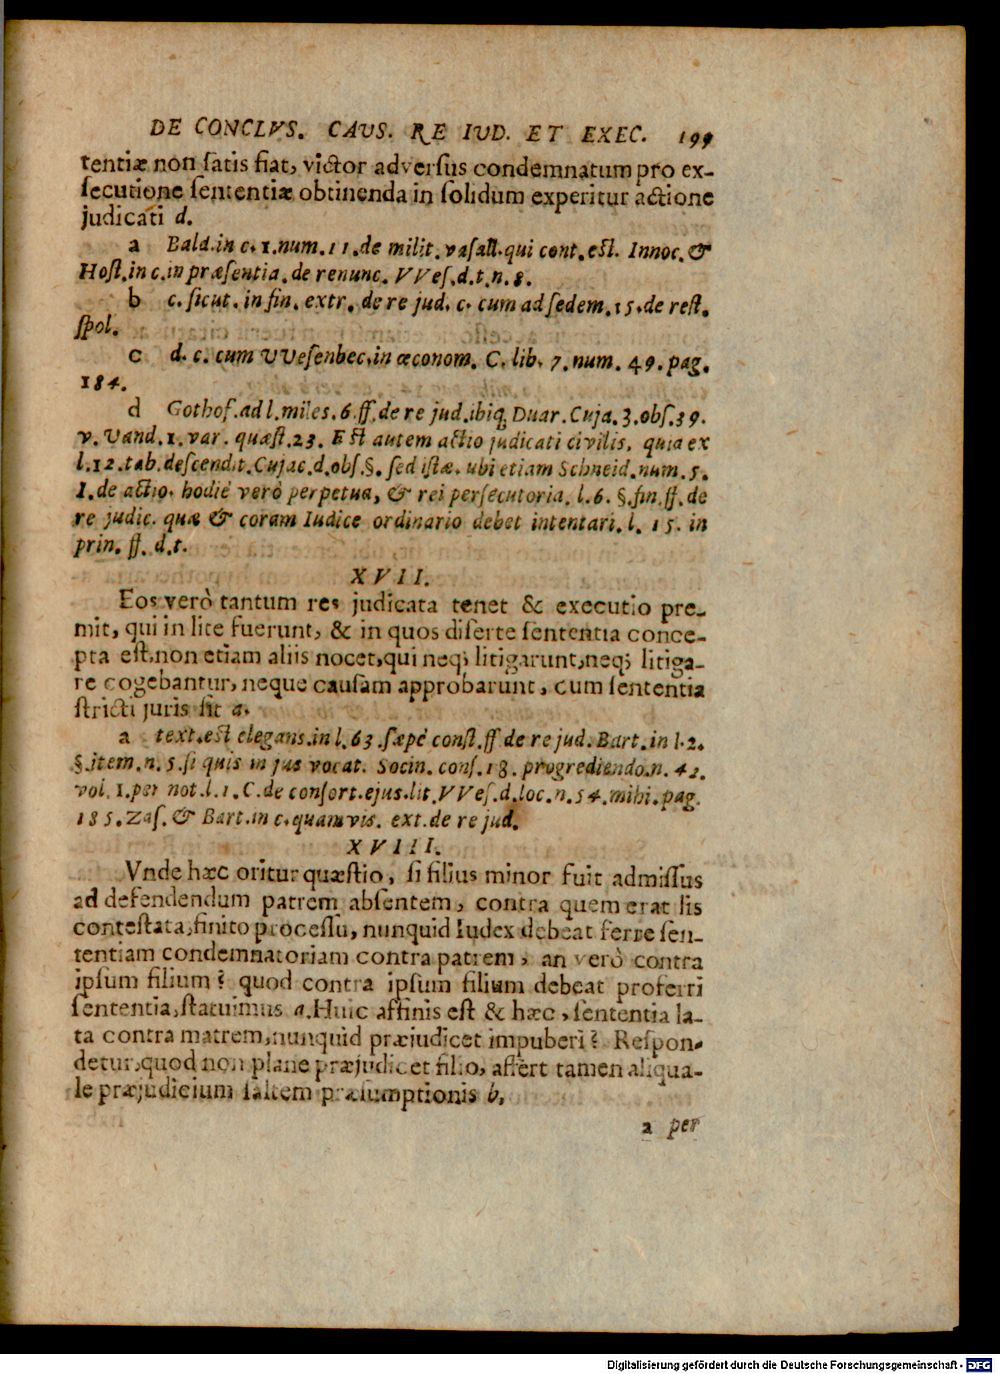 DE CONCLVS. CAVS. RE IUD. ET EXEC. 199
tentiæ non ſatis fiat, victor adverſus condemnatum pro ex-
ſecutione ſententiæ obtinenda in ſolidum experitur actione
judicati d.
a Bald. in c. 1. num. 11. de milit. vaſall. qui cont. eſt. Innoc. &
Hoſt. in c. in præſentia. de renunc. VVeſ. d. t. n. 8.
b c. ſicut. in fin. extr. de re jud. c. cum ad ſedem. 15. de reſt.
ſpol.
c d. c. cum VVeſenbec. in œconom. C. lib. 7. num. 49. pag.
184.
d Gothof. ad l. miles. 6. ff. de re jud. ibiq; Duar. Cuja. 3. obſ. 39.
v. Vand. 1. var. quæſt. 23. Eſt autem actio judicati civilis, quia ex
l. 12. tab. deſcendit. Cujac. d. obſ. §. ſed iſtæ. ubi etiam Schneid. num. 5.
I. de actio. hodiè verò perpetua, & rei perſecutoria. l. 6. §. fin. ff. de
re judic. quæ & coram Iudice ordinario debet intentari. l. 15. in
prin. ff. d. t.
XVII.
Eos verò tantum res judicata tenet & executio pre-
mit, qui in lite fuerunt, & in quos diſerte ſententia conce-
pta eſt, non etiam aliis nocet, qui neq; litigarunt, neq; litiga-
re cogebantur, neque cauſam approbarunt, cum ſententia
ſtricti juris ſit a.
a text. eſt elegans. in l. 63. ſæpè conſt. ff. de re jud. Bart. in l. 2.
§. item. n. 5. ſi quis in jus vocat. Socin. conſ. 18. progrediendo. n. 42.
vol. 1. per not. l. 1. C. de conſort. ejus. lit. VVeſ. d. loc. n. 54. mihi. pag.
185. Zaſ. & Bart. in c. quamvis. ext. de re jud.
XVIII.
Vnde hæc oritur quæſtio, ſi filius minor fuit admiſſus
ad defendendum patrem abſentem, contra quem erat lis
conteſtata, finito proceſſu, nunquid Iudex debeat ferre ſen-
tentiam condemnatoriam contra patrem, an verò contra
ipſum filium? quod contra ipſum filium debeat proferri
ſententia, ſtatuimus a. Huic affinis eſt & hæc, ſententia la-
ta contra matrem, nunquid præjudicet impuberi? Reſpon-
detur, quod non plane præjudicet filio, affert tamen aliqua-
le præjudicium ſaltem præſumptionis b.
a per
Digitalisierung gefördert durch die Deutsche Forschungsgemeinschaft - DFG